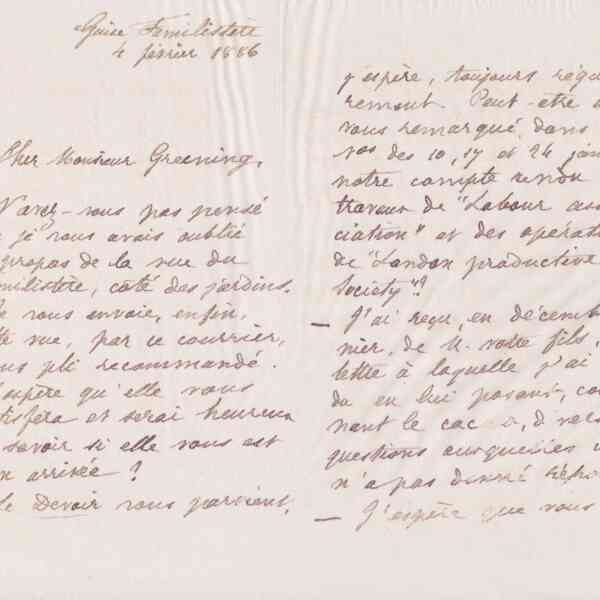 Guise Familistère
4 février 1886
Cher Monsieur Greening,
N'avez-vous pas pensé
je vous avais oublié
propos de la vue du
milistère, côté des jardins.
vous envoie, enfin,
vue, par ce courrier,
pli recommandé.
espère qu'elle vous
tisfera et serai heureux
savoir si elle vous est
n arrivée ?
le Devoir vous parvient,
j'espère, toujours régu
rement. Peut-être a
vous remarqué dans
nos des 10, 17 et 24 jan
notre compte rendu
travaux de "Labour asso
ciation" et des opérat
de "London productive
Society"?
— J'ai reçu, en décemb
nier, de M. votre fils,
lettre à laquelle j'ai
du en lui posant, co
nant le cacao, divers
questions auxquelles
n'a pas donné répo
— J'espère que vous